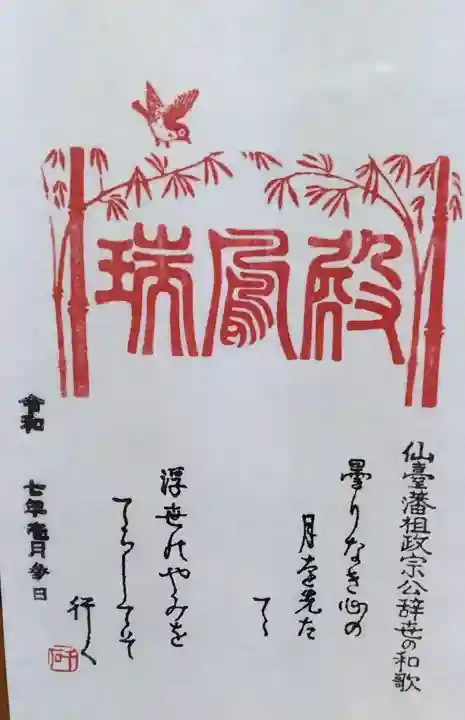 瑞鳳殿
仙臺藩祖政宗公辞世の和歌
曇りなき心の
月を先た
てゝ
浮世のやみを
てらしてそ
行く
令和 七年壱月参日